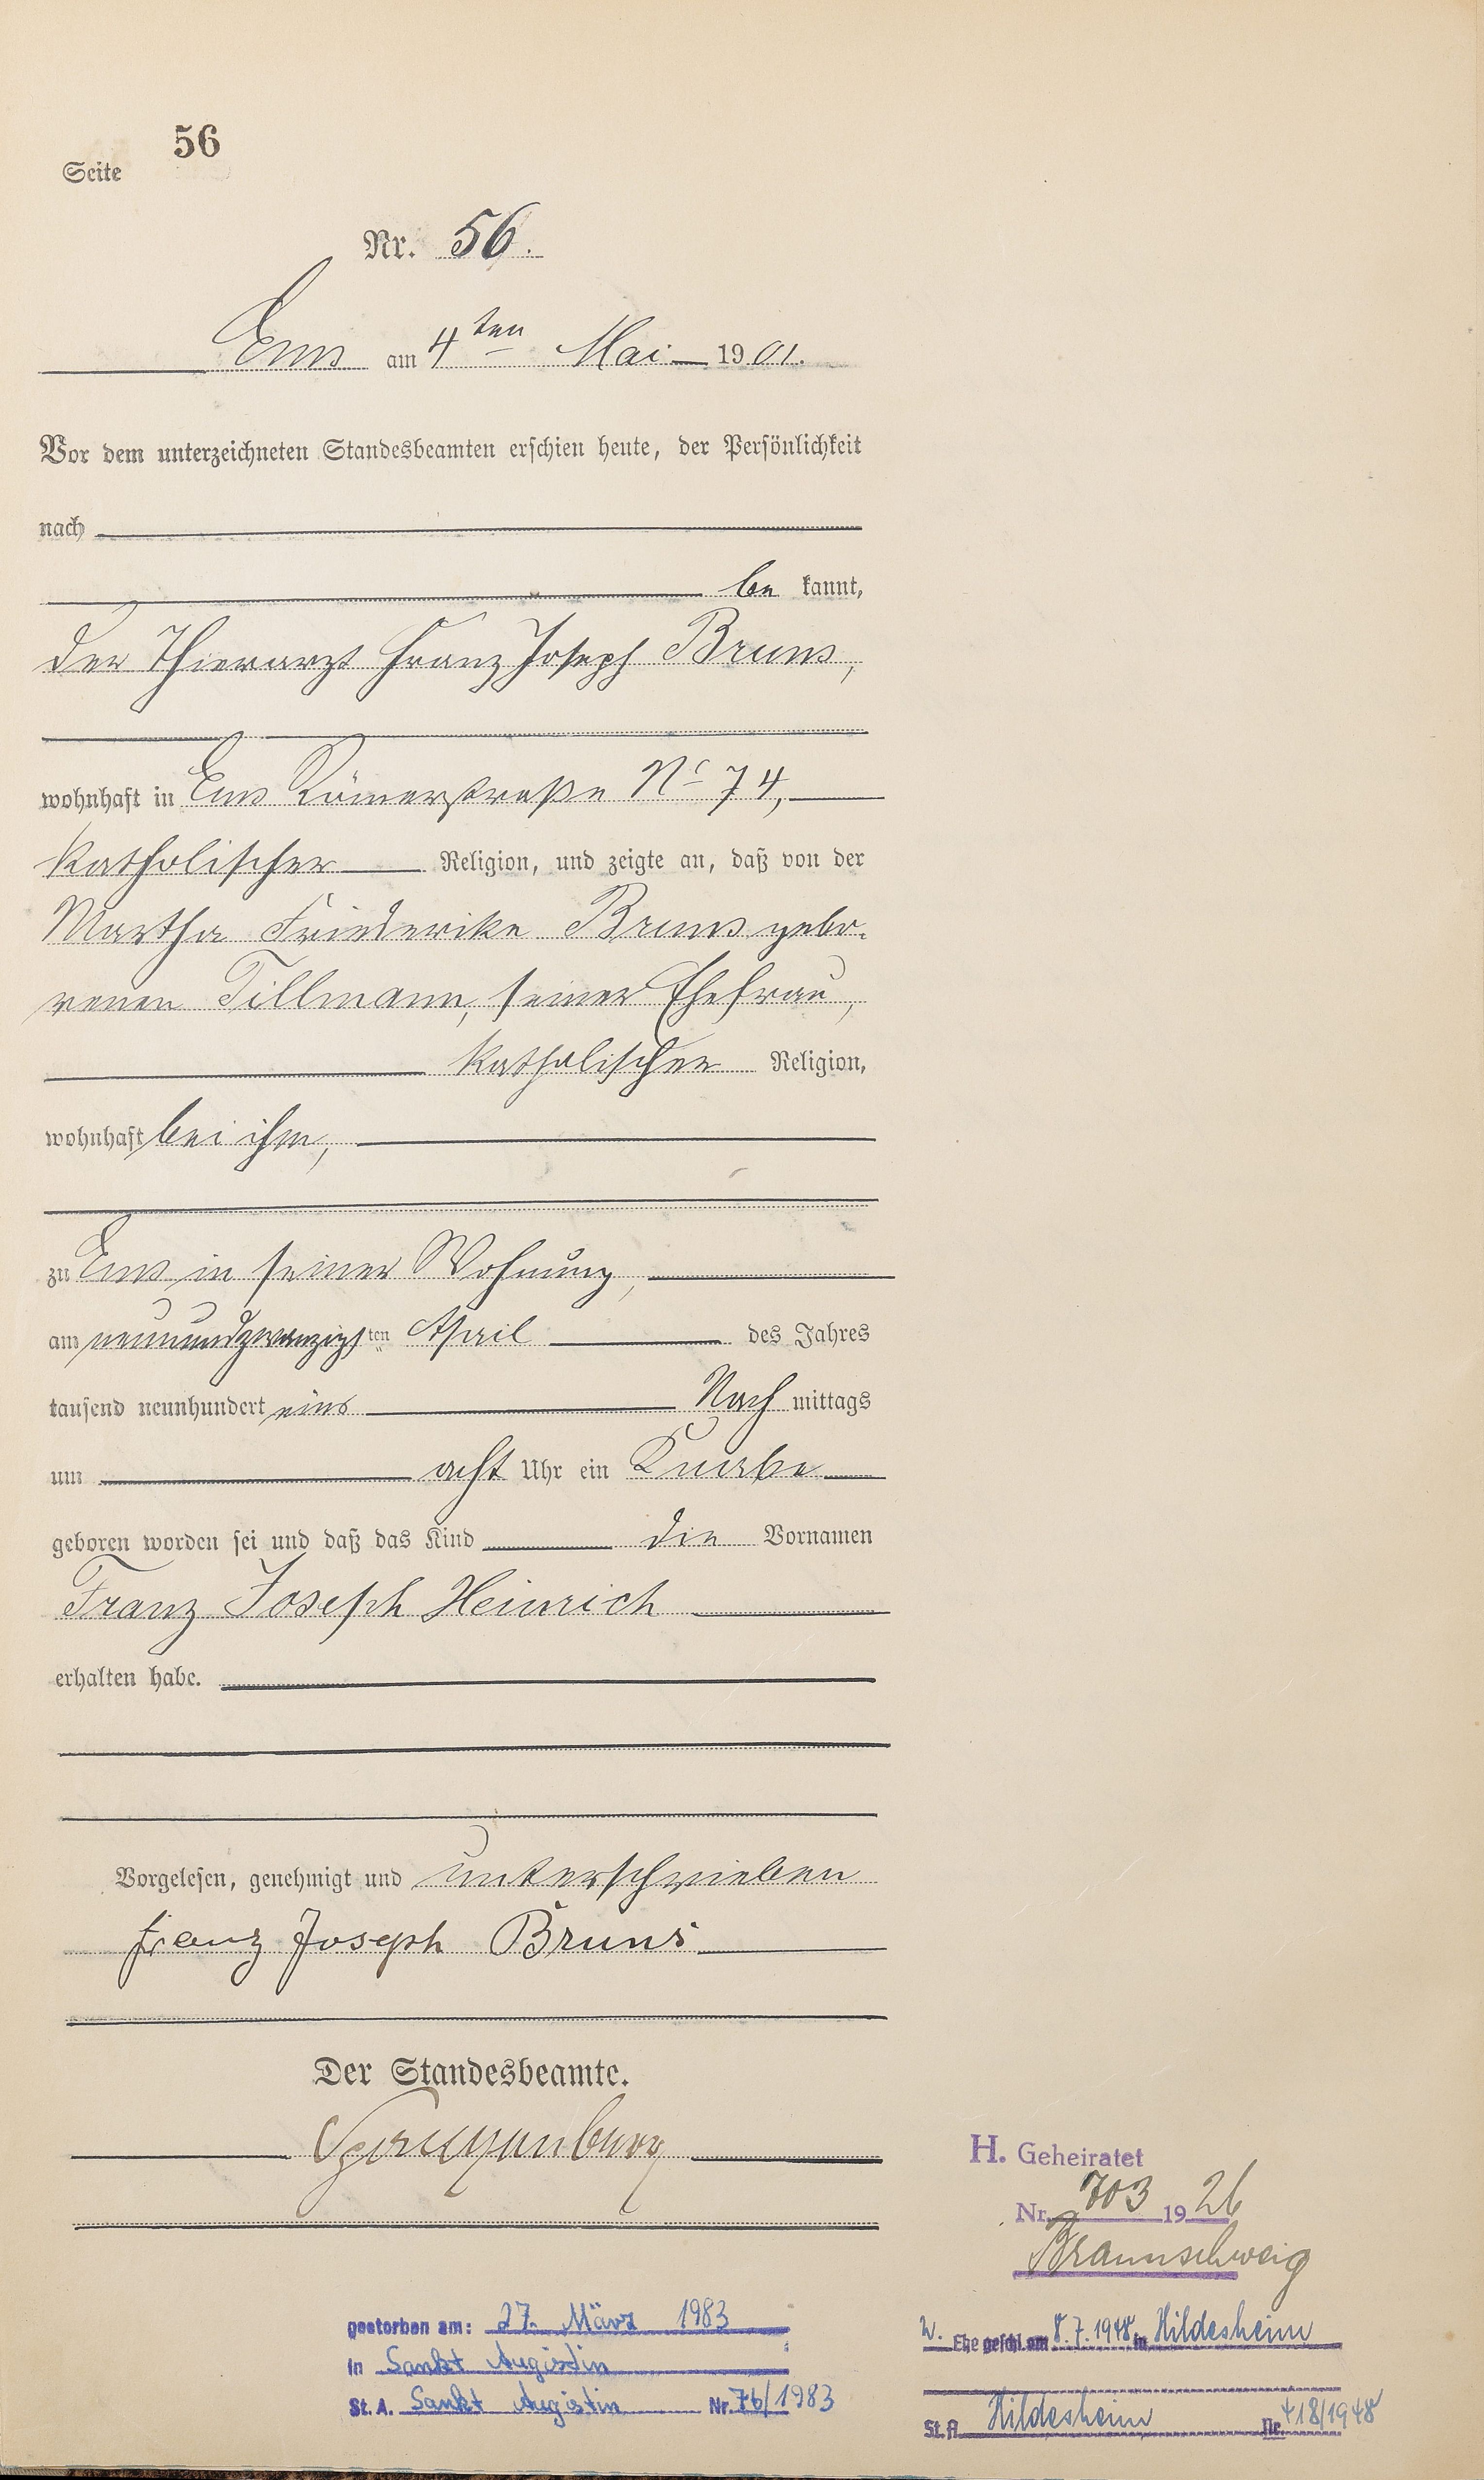 56
Seite
Nr. 56.
Ems am 4ten Mai 1901.
Vor dem unterzeichneten Standesbeamten erschien heute, der Persönlichkeit
nach
be kannt,
der Thierarzt Franz Joseph Bruns,
wohnhaft in Ems Römerstraße No 74,
katholischer Religion, und zeigte an, daß von der
Martha Friederike Bruns gebo-
renen Tillmann, seiner Ehefrau,
katholischer Religion,
wohnhaft bei ihm,
zu Ems in seiner Wohnung,
am neunundzwanzigsten April des Jahres
tausend neunhundert eins Nach mittags
um acht Uhr ein Knabe
geboren worden sei und daß das Kind die Vornamen
Franz Joseph Heinrich
erhalten habe.
Vorgelesen, genehmigt und unterschrieben
Franz Joseph Bruns
Der Standesbeamte.
H. Geheiratet
Nr. 703 1926
Braunschweig
gestorben am: 27. März 1983
in Sankt Augistin
St. A. Sankt Augistin Nr. 76/1983
2. Ehe geschl. am 8.7.1948 in Hildesheim
St. A Hildesheim Nr. 418/1948